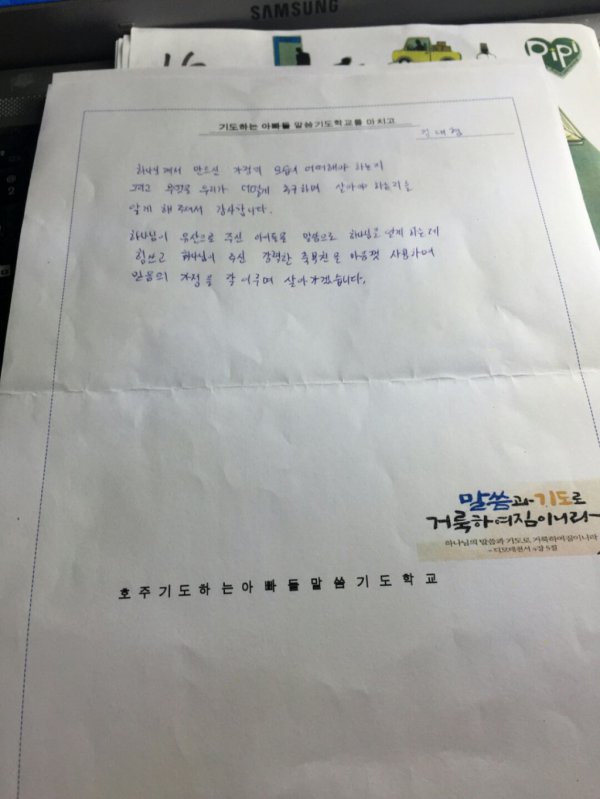 SAMSUNG
Pipi
기도하는 아빠들 말씀기도학교를 마치고
김대형
하나님께서 만드신 가정의 모습이 어떠해야 하는지
그리고 무엇을 우리가 어떻게 추구하며 살아야 하는지를
알게 해 주셔서 감사합니다.
하나님이 유산으로 주신 아이들을 말씀으로 하나님을 알게 하는데
힘쓰고 하나님이 주신 강력한 축복권을 마음껏 사용하며
믿음의 가정을 잘 이루며 살아가겠습니다.
말씀과 기도로
거룩하여짐이니라
하나님의 말씀과 기도로 거룩하여짐이니라
- 디모데전서 4장 5절
호주기도하는아빠들말씀기도학교